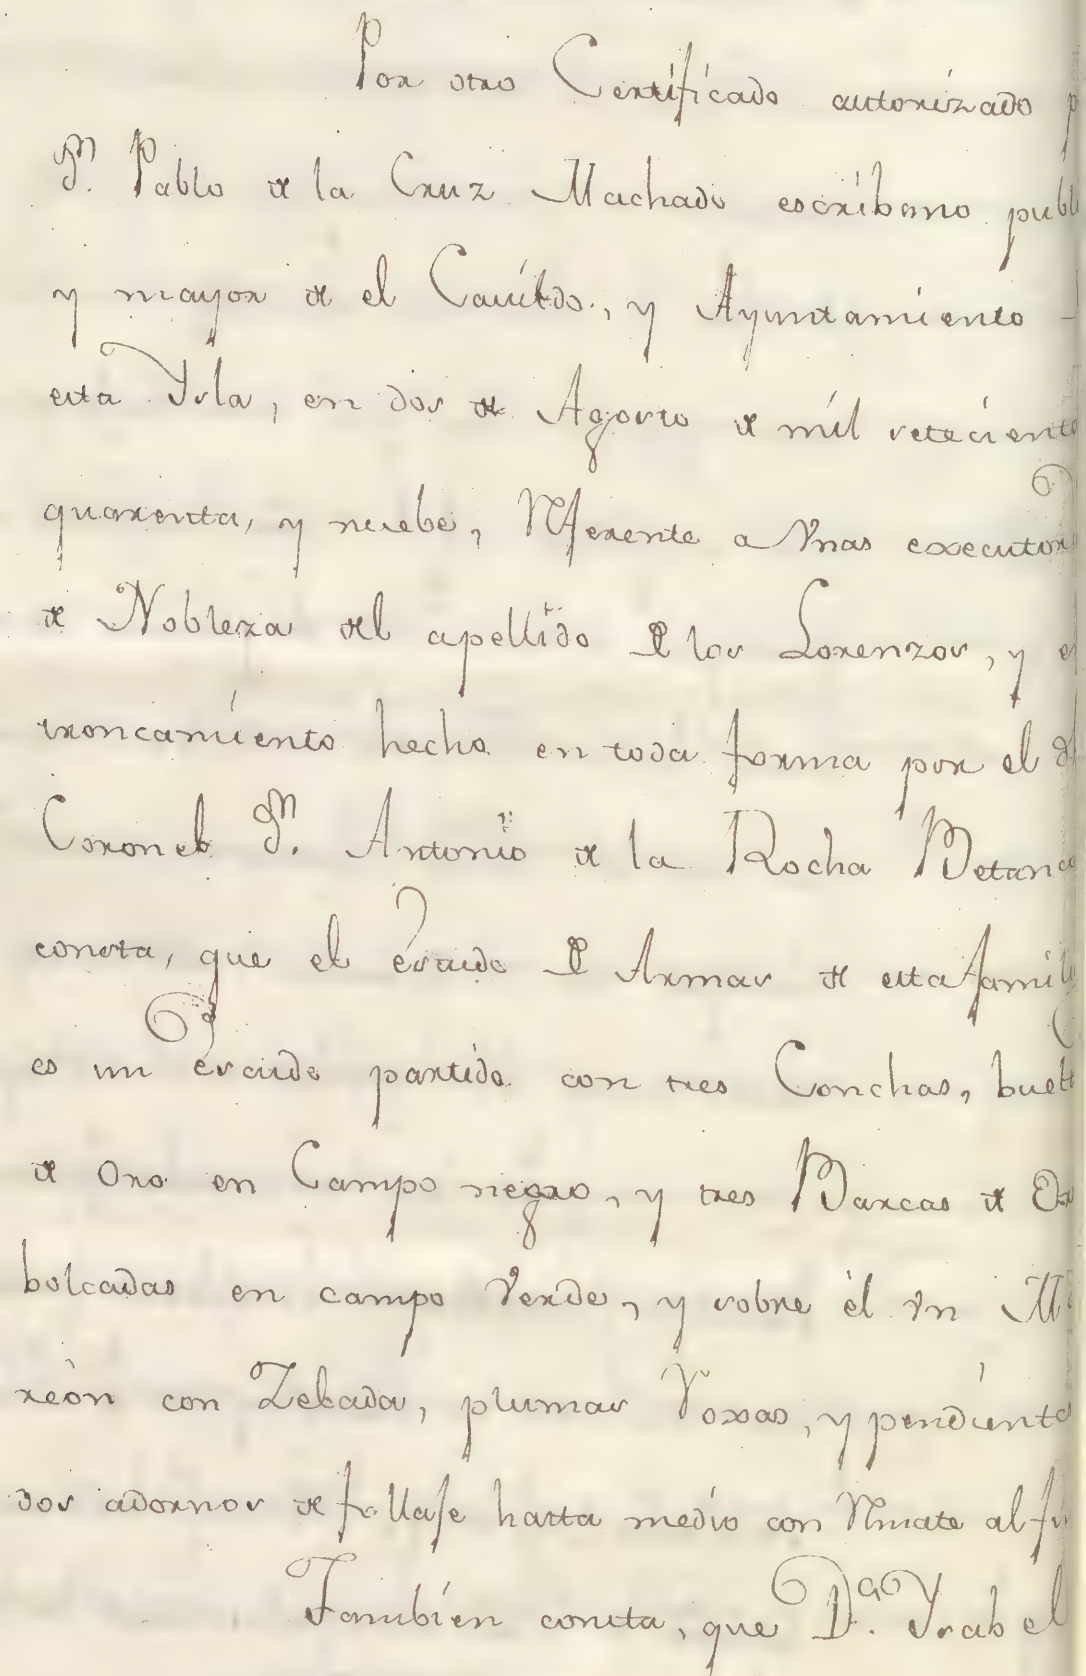 Por otro Certificado autorizado p
Dn. Pablo de la Cruz Machado escribano publi
y mayor de el Cavildo, y Ayuntamiento
esta Ysla, en dos de Agosto de mil setecient
quarenta, y nuebe, Referente a Vnas executor
de Nobleza del apellido de los Lorenzos, y e
troncamiento hecho en toda forma por el
Coronel Dn. Antonio de la Rocha Betanco
consta, que el escudo de Armas de esta famil
es un escudo partido con tres Conchas, buelt
de Oro en Campo negro, y tres Barcas de Or
bolcadas en campo Verde, y sobre èl Vn M
reòn con Zebada, plumas Roxas, y pendient
dos adornos de follaje hasta medio con Rmate al fi
Tambien consta, que Da. Ysabel